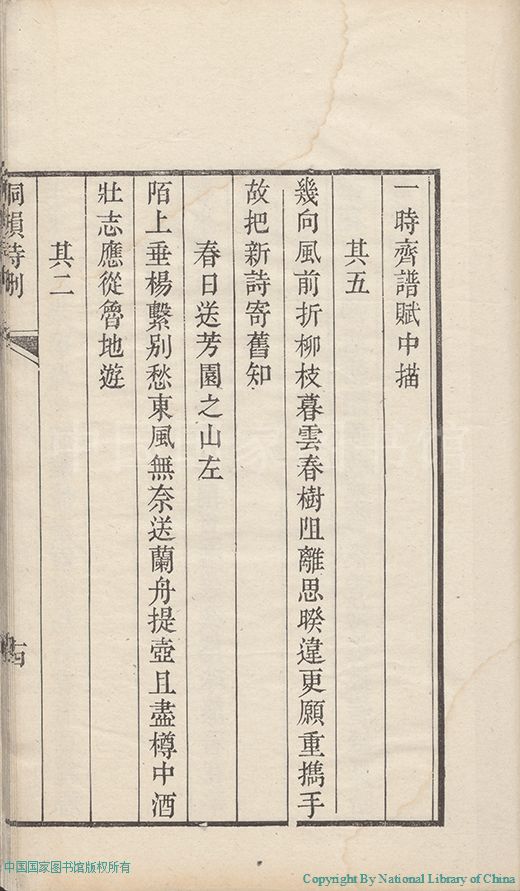 一時齊譜賦中描
其五
幾向風前折柳枝暮雲春樹阻離思暌違更願重攜手
故把新詩寄舊知
春日送芳園之山左
陌上垂楊繫別愁東風無奈送蘭舟提壺且盡樽中酒
壯志應從魯地遊
其二
中国国家图书馆版权所有
Copyright By National Library of China